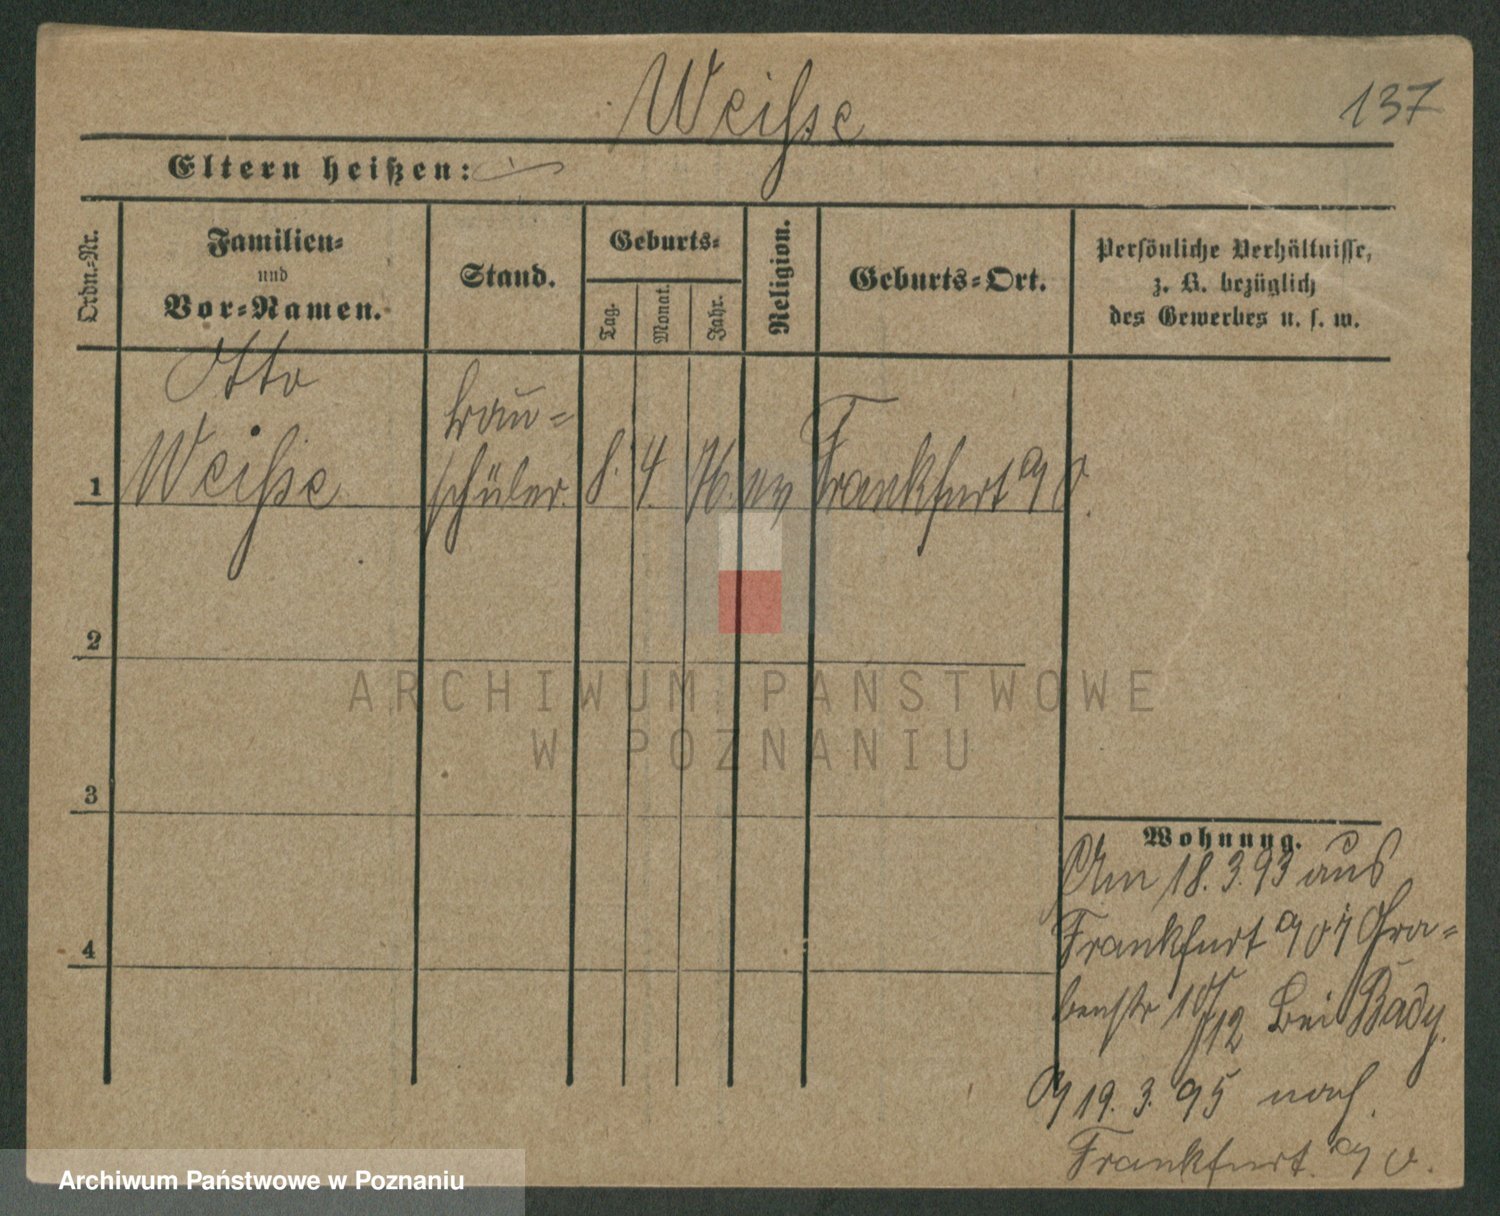 Weihse
137
Eltern heißen:
Ordn.-Nr.
Familien-
und
Vor-Namen.
Stand.
Geburts-
Tag.
Monat.
Jahr.
Religion.
Geburts-Ort.
Persönliche Verhältnisse,
z. B. bezüglich
des Gewerbes u. s. w.
Otto
Weihse
Bau-
schüler.
8. 4. 76. ev Frankfurt a/O.
1
2
3
4
Wohnung.
Am 18.3.93 aus
Frankfurt a/O Gra-
benstr 12 bei Bady.
19.3.95 nach
Frankfurt a/O.
ARCHIWUM PAŃSTWOWE
W POZNANIU
Archiwum Państwowe w Poznaniu